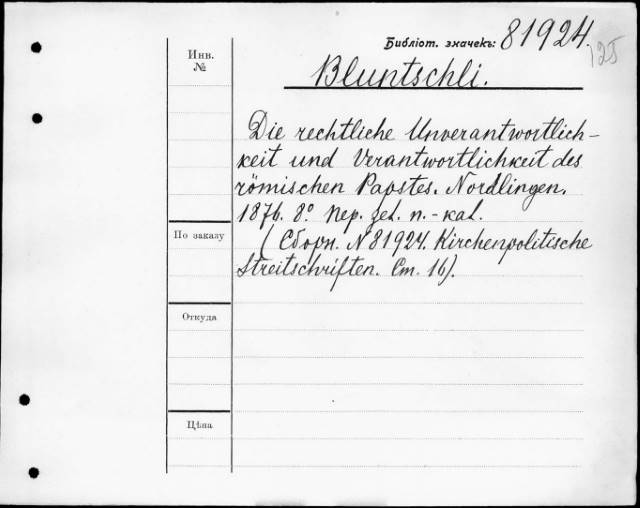 Библіот. значекъ: 81924.
125
Инв.
№
Bluntschli.
Die rechtliche Unverantwortlich-
keit und Verantwortlichkeit des
römischen Papstes. Nordlingen.
1876. 8º Пер. дет. п.-кал.
По заказу
(Сборн. N 81924. Kirchenpolitische
Streitschriften. Ст. 16).
Откуда
Цѣна